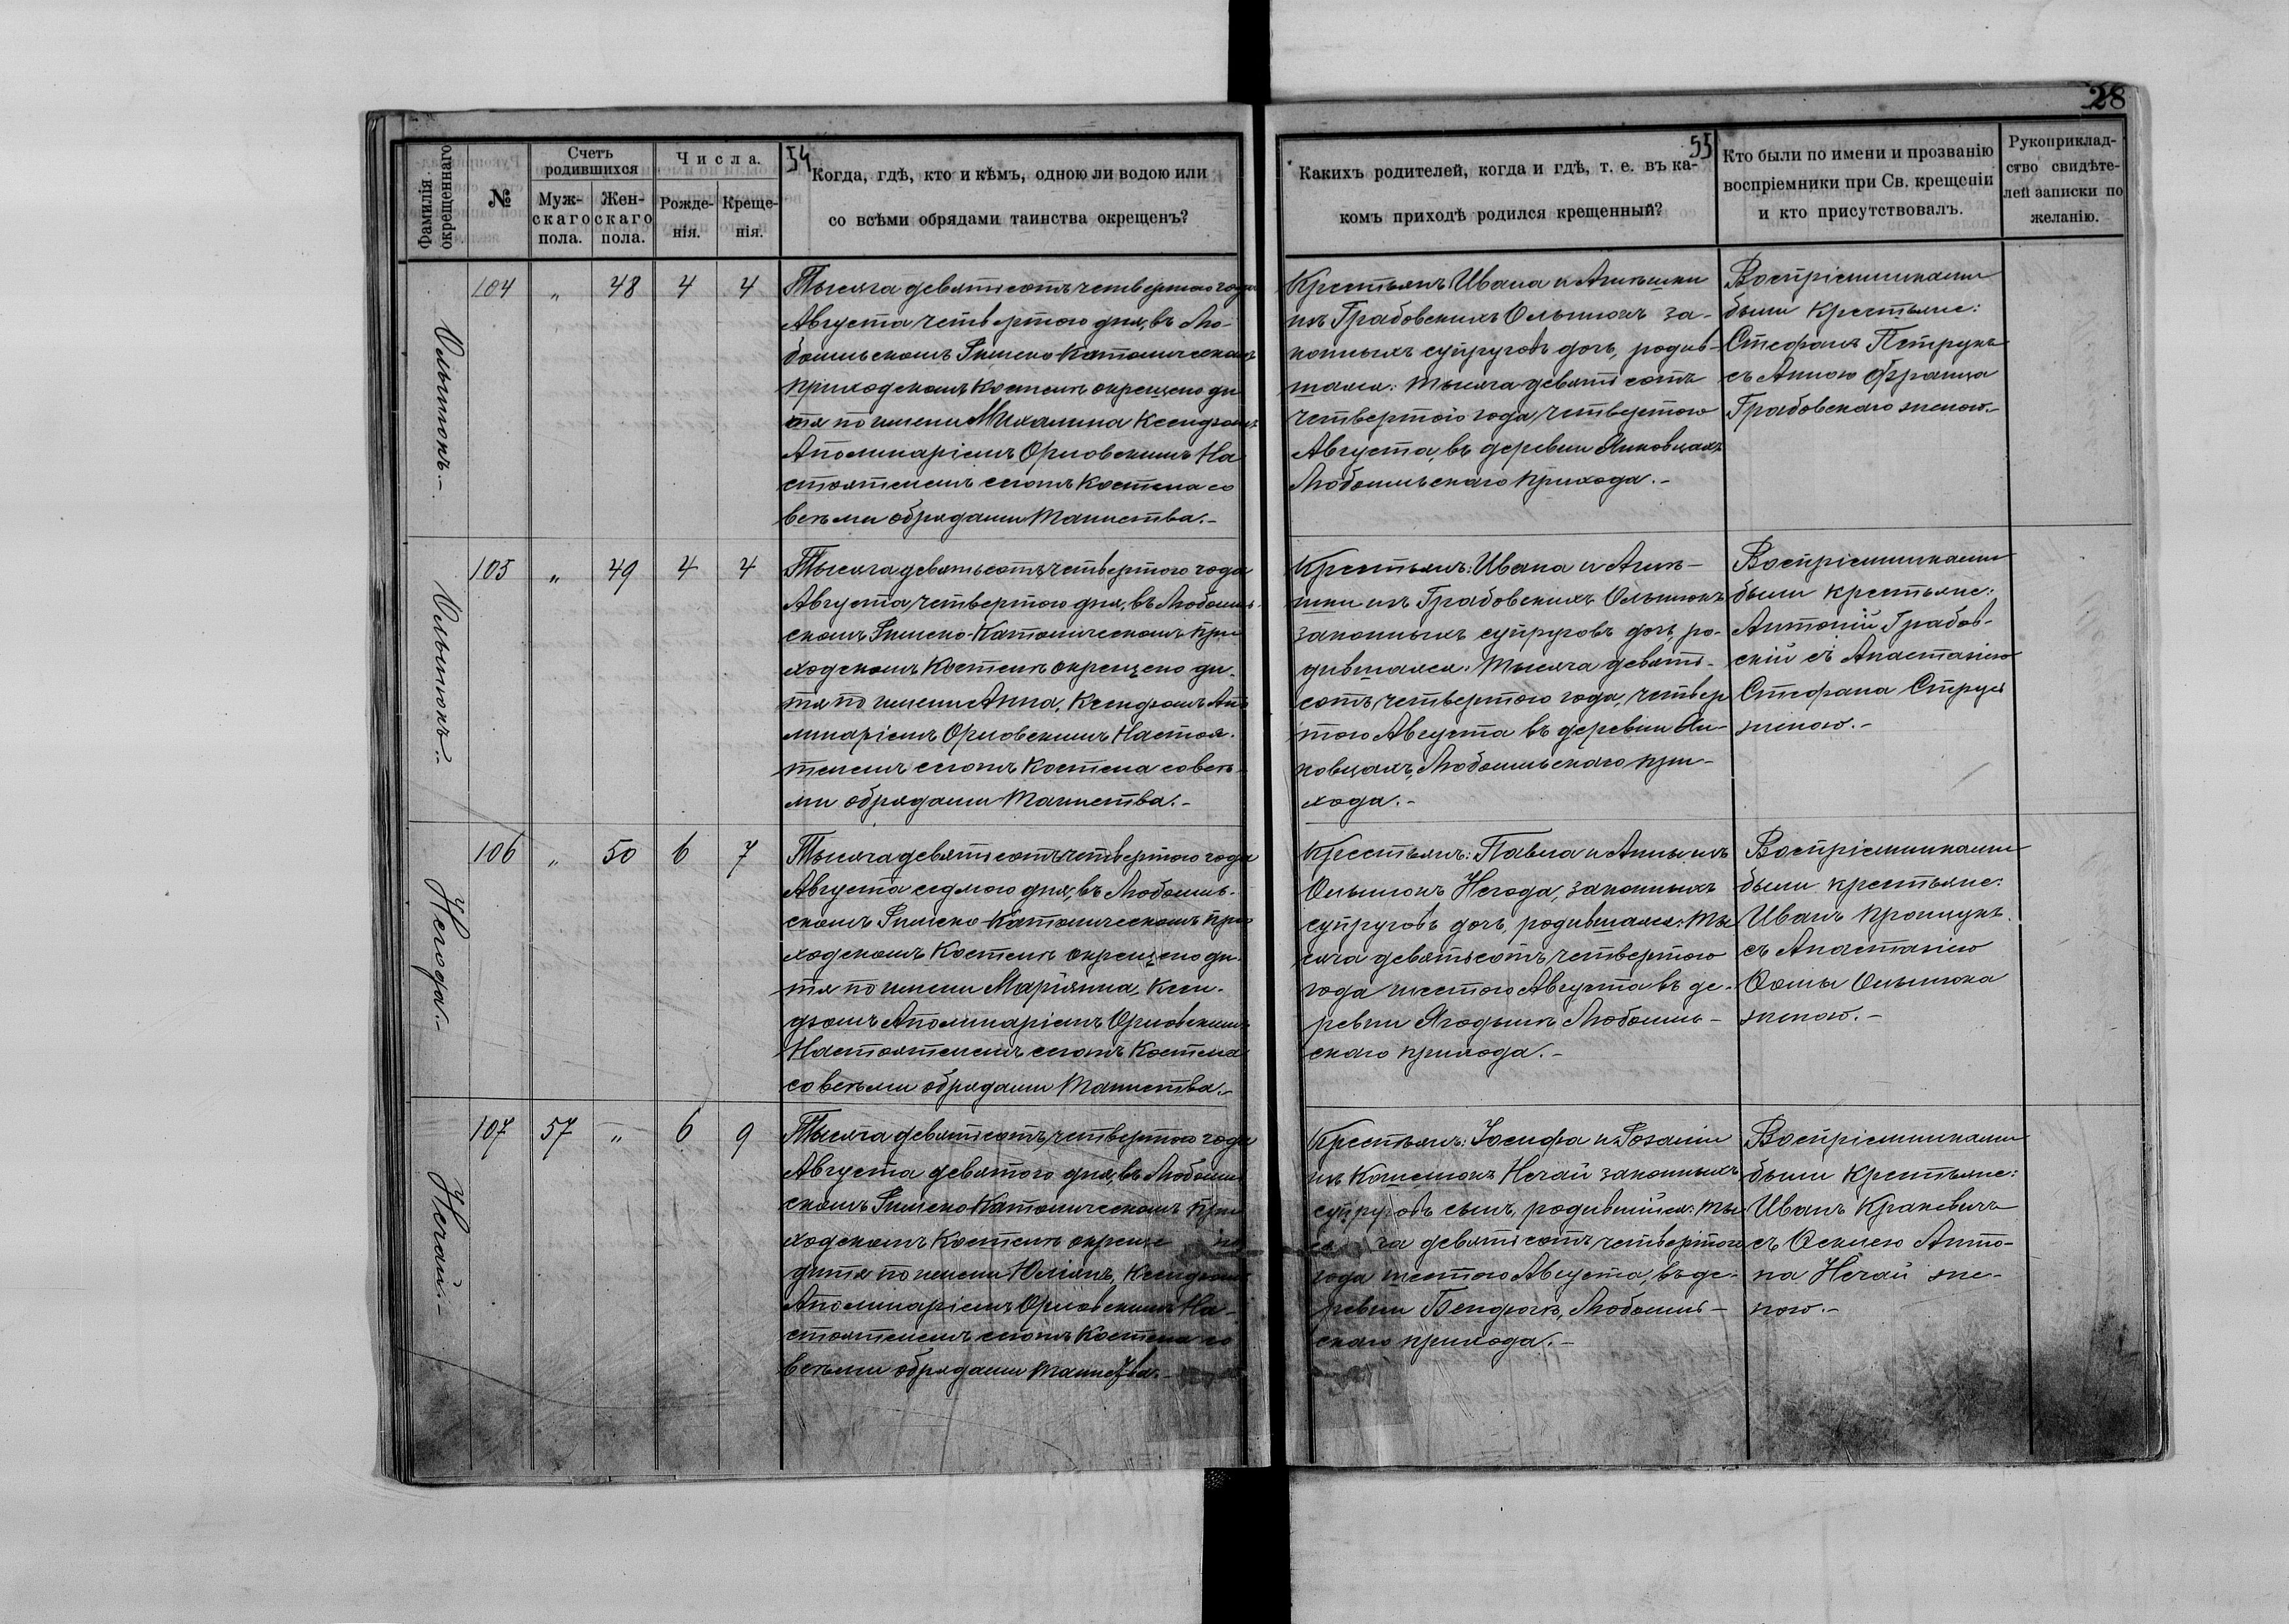 28
54
55
Фамилія окрещеннаго
№
Счетъ родившихся
Муж-
скаго
пола.
Жен-
скаго
пола.
Числа.
Рожде-
нія.
Креще-
нія.
Когда, гдѣ, кто и кѣмъ, одною ли водою или
со всѣми обрядами таинства окрещенъ?
Какихъ родителей, когда и гдѣ, т. е. въ ка-
комъ приходѣ родился крещенный?
Кто были по имени и прозванію
воспріемники при Св. крещеніи
и кто присутствовалъ.
Рукоприклад-
ство свидѣте-
лей записки по
желанію.
Ольшюкъ.-
104 „ 48 4 4
Тысяча девятьсотъ четвертаго года
Августа четвертого дня, въ Лю-
бомльскомъ Римско Католическомъ
приходскомъ Костелѣ окрещено ди
тя по имени Михалина Ксендзомъ
Аполинаріемъ Орловскимъ На
стоятелемъ сегожъ Костела со
всѣми обрядами Таинства.-
Крестьянъ Ивана и Агнѣшки
изъ Грабовскихъ Ольшюкъ за-
конныхъ супруговъ дочь, родив-
шаяся: тысяча девятьсотъ
четвертого года, четвертого
Августа, въ деревни Янковцахъ
Любомльскаго прихода.-
Воспріемниками
были крестьяне:
Стефанъ Петрукъ
съ Анною Франца
Грабовскаго женою.-
Ольшюкъ.-
105 „ 49 4 4
Тысяча девятьсотъ четвертого года
Августа, четвертого дня, въ Любомль-
скомъ Римско-Католическомъ при
ходскомъ Костелѣ окрещено ди-
тя по имени Анна, Ксендзомъ Апо
линаріемъ Орловскимъ Настоя-
телемъ сегожъ Костела со всѣ-
ми обрядами Таинства.-
Крестьянъ: Ивана и Агнѣ-
шки изъ Грабовскихъ Ольшюкъ
законныхъ супруговъ дочь, ро-
дившаяся: тысяча девять-
сотъ четвертого года, четвер
того Августа въ деревни Ян-
ковцахъ, Любомльскаго при-
хода.-
Воспріемниками
были крестьяне:
Антоній Грабов-
скій съ Анастасіею
Стефана Струк
женою.-
Негода.-
106 „ 50 6 7
Тысяча девятьсотъ четвертого года
Августа седмого дня, въ Любомль-
скомъ Римско-Католическомъ при
ходскомъ Костелѣ окрещено ди-
тя по имени Маріянна, Ксен-
дзомъ Аполинаріемъ Орловскимъ
Настоятелемъ сегожъ Костела
со всѣми обрядами Таинства.-
Крестьянъ: Павла и Анны изъ
Ольшюкъ Негода, законныхъ
супруговъ дочь, родившаяся: ты
сяча девятьсотъ четвертого
года шестого Августа въ де-
ревни Ягодынѣ Любомль-
скаго прихода.-
Воспріемниками
были крестьяне:
Иванъ Прощукъ
съ Анастасіею
Фомы Ольшюка
женою.-
Нечай.-
107 57 „ 6 9
Тысяча девятьсотъ, четвертого года
Августа девятого дня, въ Любомль
скомъ Римско Католическомъ при
ходскомъ Костелѣ окреще но
дитя по имени Юліянъ, Ксендзомъ
Аполинаріемъ Орловскимъ На-
стоятелемъ сегожъ Костела со
всѣми обрядами Таинства.-
Крестьянъ: Іосифа и Розаліи
изъ Кошелюкъ Нечай законныхъ
супруговъ сынъ, родившійся: ты
ся ча девятьсотъ четвертого
года шестого Августа, въ де-
ревни Бендюгѣ, Любомль-
скаго прихода.-
Воспріемниками
были крестьяне:
Иванъ Кракевичъ
съ Оскіею Анто-
на Нечай же-
ною.-